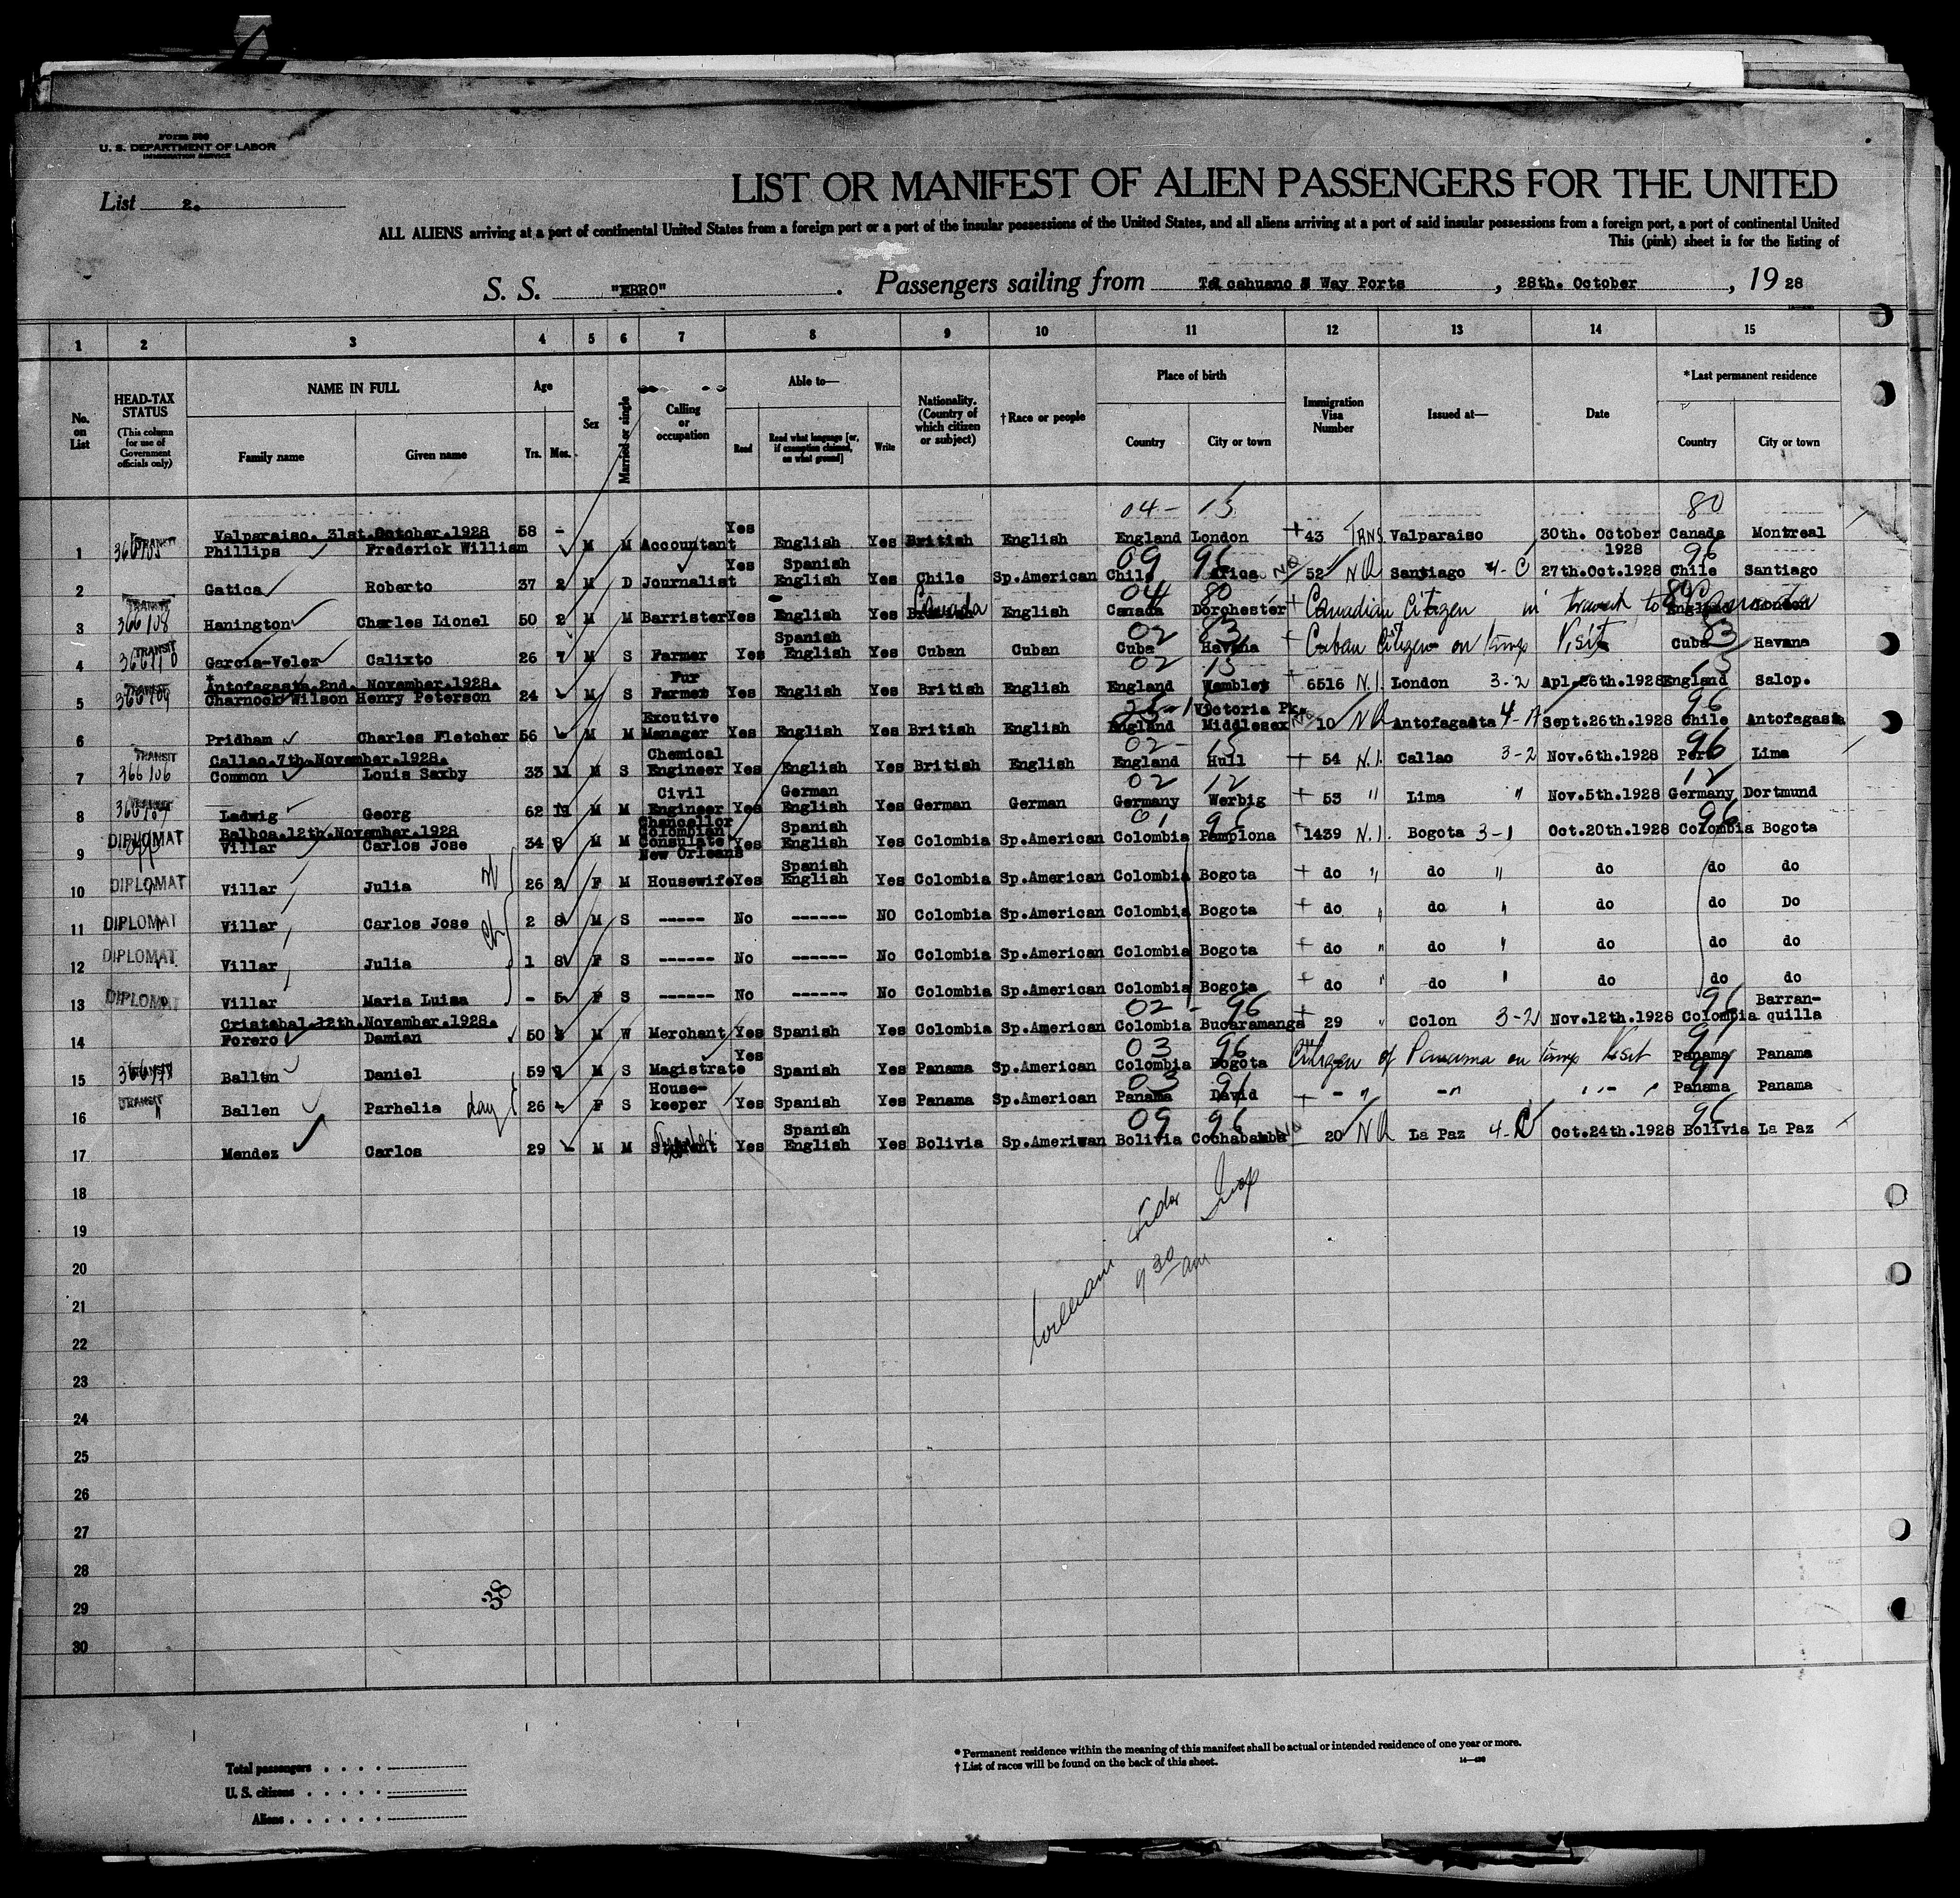 Form 500
U. S. DEPARTMENT OF LABOR
IMMIGRATION SERVICE
List 2.
LIST OR MANIFEST OF ALIEN PASSENGERS FOR THE UNITED
ALL ALIENS arriving at a port of continental United States from a foreign port or a port of the insular possessions of the United States, and all aliens arriving at a port of said insular possessions from a foreign port, a port of continental United
This (pink) sheet is for the listing of
S. S. "EBRO". Passengers sailing from Talcahuano & Way Ports, 28th. October, 19 28
1 2 3 4 5 6 7 8 9 10 11 12 13 14 15
No. on List
HEAD-TAX STATUS (This column for use of Government officials only)
NAME IN FULL Family name Given name
Age Yrs. Mos.
Sex
Married or single
Calling or occupation
Able to— Read Read what language [or, if exemption claimed, on what ground] Write
Nationality. (Country of which citizen or subject)
†Race or people
Place of birth Country City or town
Immigration Visa Number
Issued at—
Date
*Last permanent residence Country City or town
04- 15 80
Valparaiso. 31st.October.1928
1 TRANSIT Phillips Frederick William 58 - M M Accountant Yes English Yes British English England London +43 TRNS Valparaiso 30th. October 1928 Canada Montreal
09 96 96
2 Gatica Roberto 37 2 M D Journalist Yes Spanish English Yes Chile Sp.American Chile Arica 52 NQ Santiago 4-C 27th.Oct.1928 Chile Santiago
04 80
3 TRANSIT 366108 Hanington Charles Lionel 50 2 M M Barrister Yes English Yes British Canada English Canada Dorchester + Canadian Citizen in transit to Canada England London
02 83 83
4 TRANSIT Garcia-Velez Calixto 26 7 M S Farmer Yes Spanish English Yes Cuban Cuban Cuba Havana + Cuban Citizen on temp Visit Cuba Havana
02 15
Antofagasta.2nd. November.1928.
5 TRANSIT Charnock Wilson Henry Peterson 24 M S Fur Farmer Yes English Yes British English England Wembley + 6516 N.I. London 3-2 Apl.26th.1928 England Salop.
96
6 Pridham Charles Fletcher 56 M M Excutive Manager Yes English Yes British English England Victoria Pk. Middlesex 10 NQ Antofagasta 4-A Sept.26th.1928 Chile Antofagasta
02- 15 96
Callao.7th.November.1928.
7 TRANSIT 366106 Common Louis Saxby 33 11 M S Chemical Engineer Yes English Yes British English England Hull + 54 N.I. Callao 3-2 Nov.6th.1928 Peru Lima
02 12 12
8 Ladwig Georg 62 11 M M Civil Engineer Yes German English Yes German German Germany Werbig + 53 " Lima " Nov.5th.1928 Germany Dortmund
01 96 96
Balboa.12th.November.1928
9 DIPLOMAT Villar Carlos Jose 34 8 M M Chancellor Colombian Consulate New Orleans Yes Spanish English Yes Colombia Sp.American Colombia Pamplona +1439 N.I. Bogota 3-1 Oct.20th.1928 Colombia Bogota
10 DIPLOMAT Villar Julia 26 2 F M Housewife Yes Spanish English Yes Colombia Sp.American Colombia Bogota + do " do " do do do
11 DIPLOMAT Villar Carlos Jose 2 8 M S ----- No ------ NO Colombia Sp.American Colombia Bogota + do " do " do do Do
12 DIPLOMAT Villar Julia 1 8 F S ------ No ------ No Colombia Sp.American Colombia Bogota + do " do " do do do
13 DIPLOMAT Villar Maria Luisa - 5 F S ------ No ------ No Colombia Sp.American Colombia Bogota + do " do " do do do
02 - 96 96
Cristobal.12th.November.1928.
14 Forero Damian 50 3 M W Merchant Yes Spanish Yes Colombia Sp.American Colombia Bucaramanga + 29 " Colon 3-2 Nov.12th.1928 Colombia Barran-quilla
03 96 91
15 TRANSIT Ballen Daniel 59 M S Magistrate Yes Spanish Yes Panama Sp.American Colombia Bogota Citizen of Panama on temp Visit Panama Panama
03 91 91
16 TRANSIT Ballen Parhelia dau 26 - F S House-keeper Yes Spanish Yes Panama Sp.American Panama David + - " -" " - " Panama Panama
09 96 96
17 Mendez Carlos 29 M M Yes Spanish English Yes Bolivia Sp.Ameriwan Bolivia Cochabamba 20 NQ La Paz 4-C Oct.24th.1928 Bolivia La Paz
18
19
20
21
22
23
24
25
26
27
28
29
30
William
9 30 am
38
Total passengers
U. S. citizens
Aliens
* Permanent residence within the meaning of this manifest shall be actual or intended residence of one year or more.
† List of races will be found on the back of this sheet.